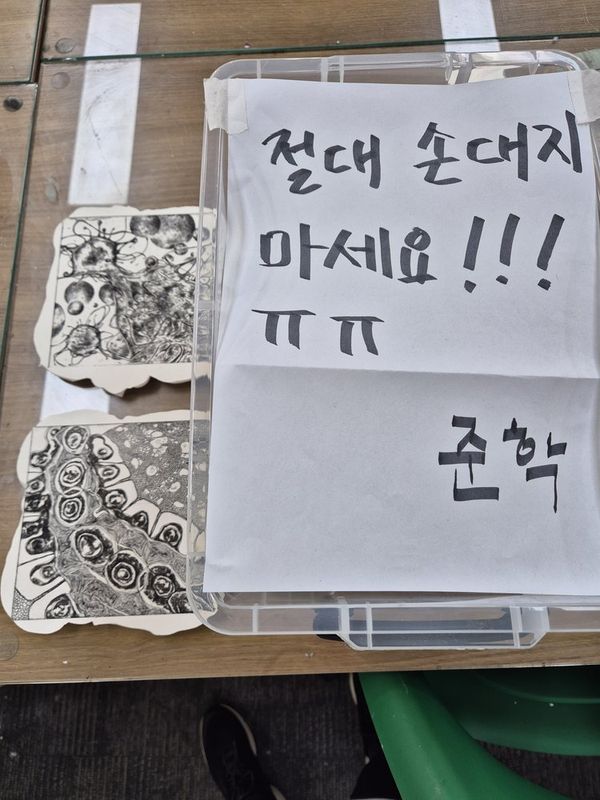 절대 손대지
마세요!!!
ㅠㅠ
준학